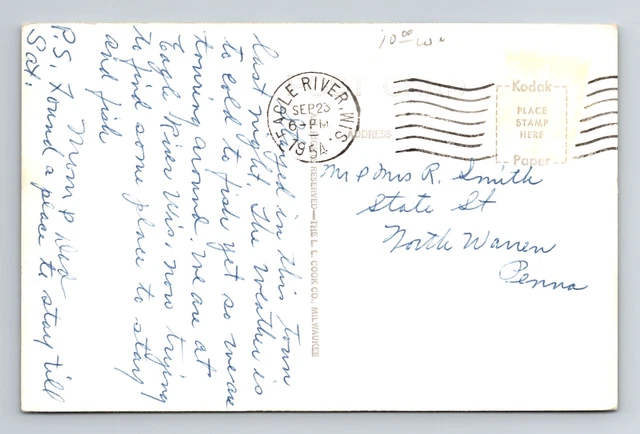 10.00
EAGLE RIVER, WIS.
SEP 23
6 - PM
1954
ADDRESS
Kodak
PLACE
STAMP
HERE
Paper
Mr & Mrs R. Smith
State St
North Warren
Penna
RESERVED—THE L. L. COOK CO., MILWAUKEE
Stayed in this town
last night. The weather is
to cold to fish yet so we are
touring around. We are at
Eagle River Wis. now trying
to find some place to stay
and fish
Mom & Dad
P.S. Found a place to stay till
Sat.